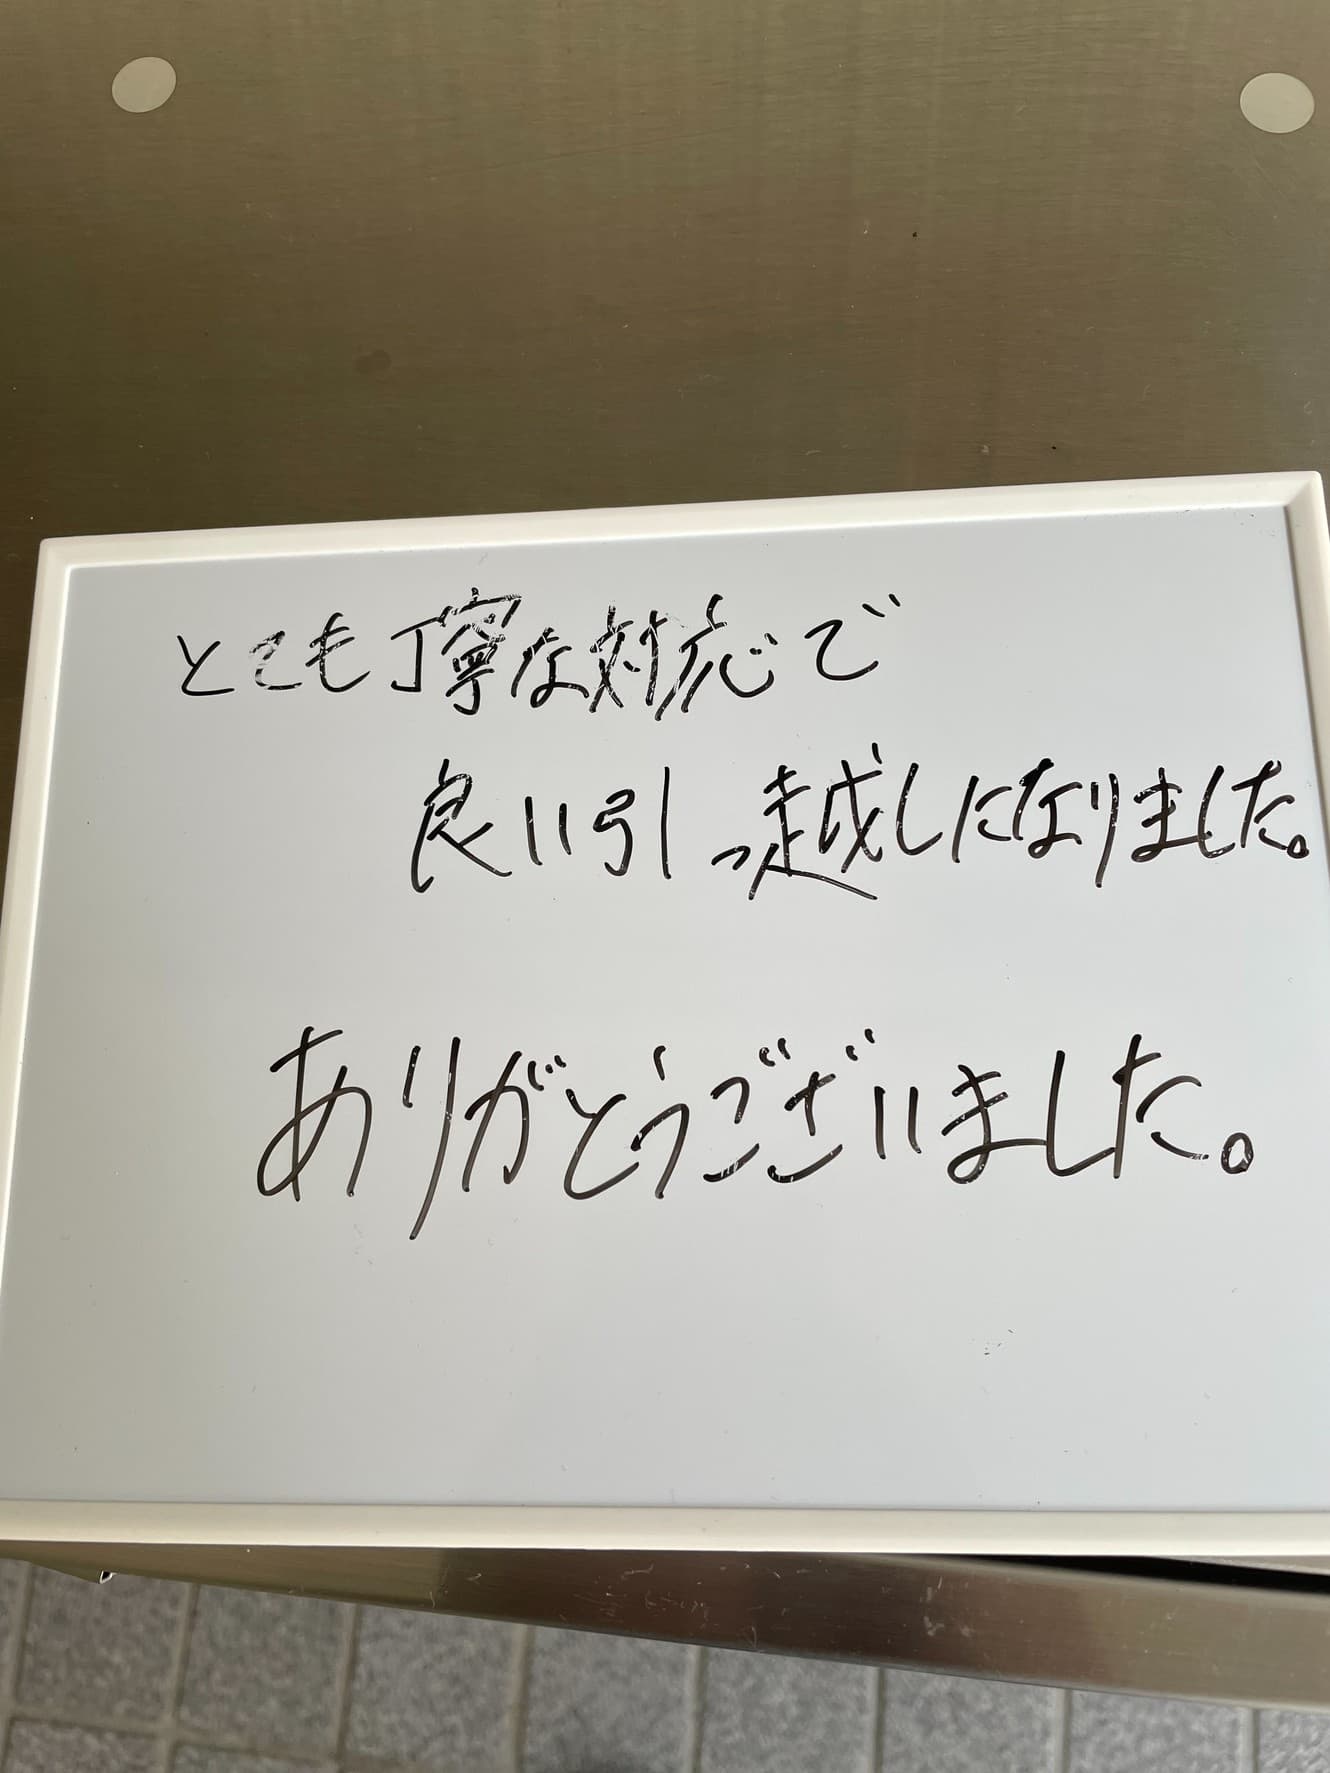 とても丁寧な対応で
良い引っ越しになりました。
ありがとうございました。